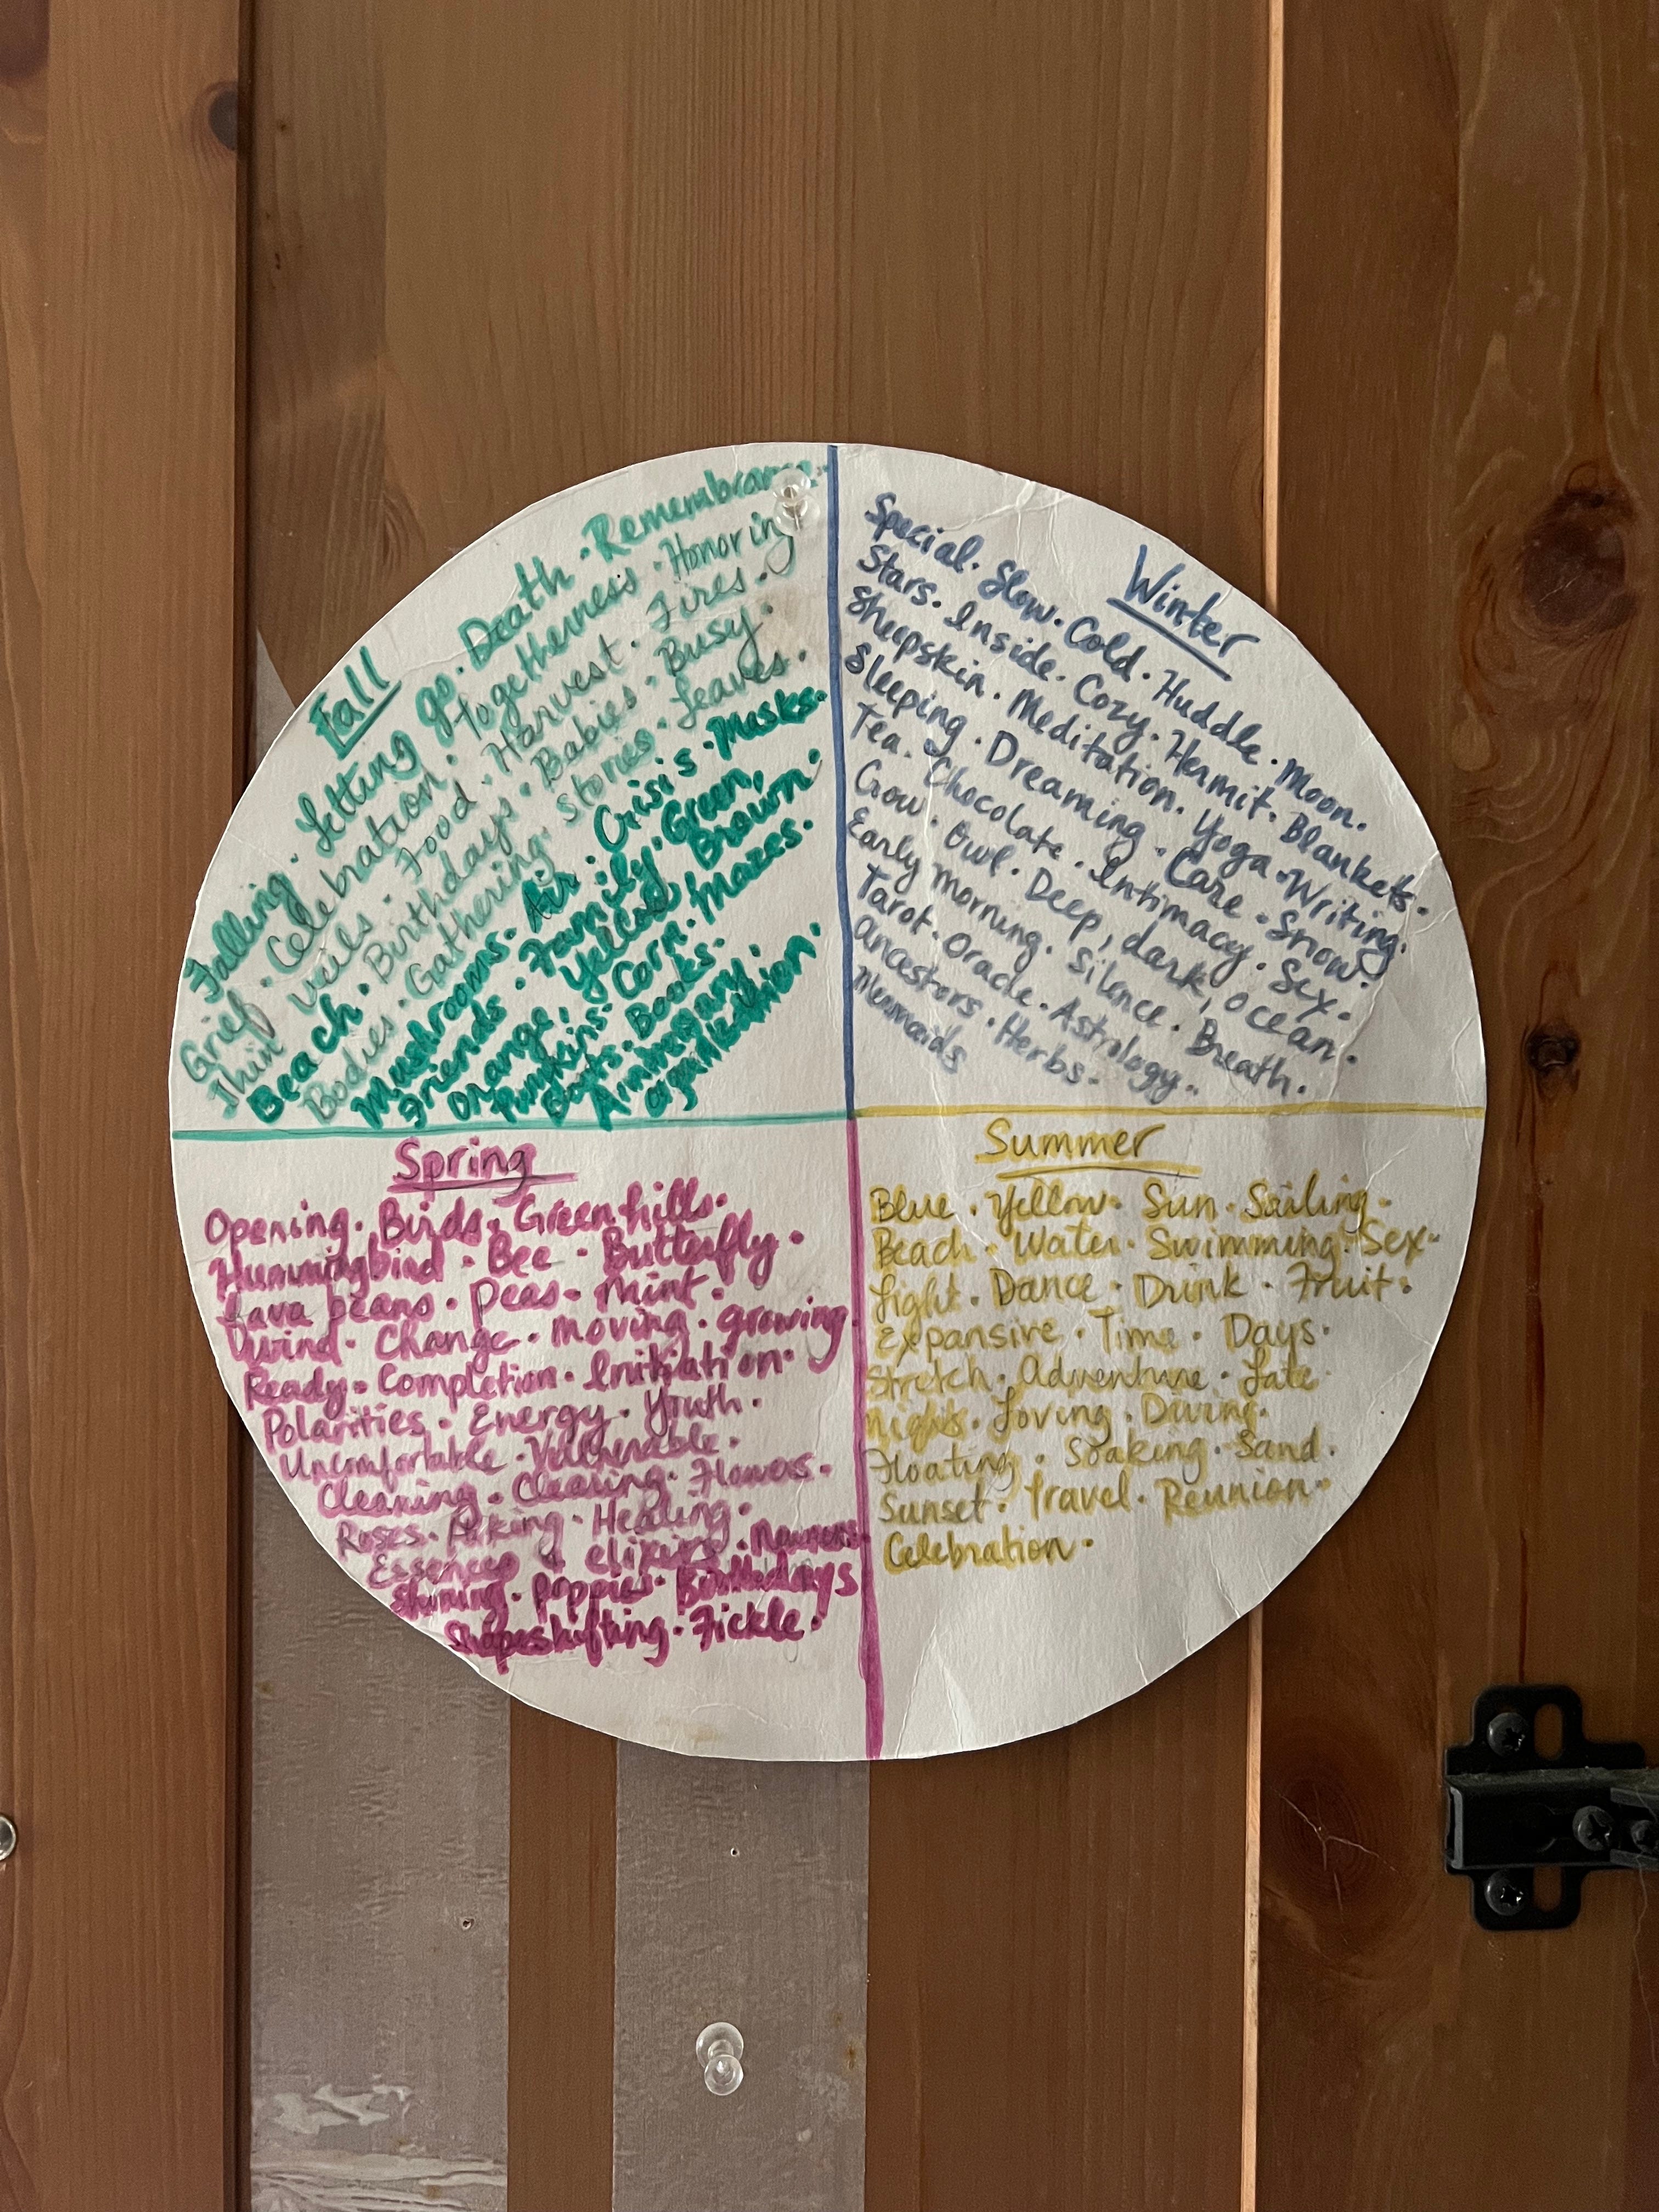 Fall
Falling. Letting go. Death. Remembrance.
Grief. Celebration. Togetherness. Honoring
Thin veils. Food. Harvest. Fires.
Beach. Birthdays. Babies. Busy.
Bodies. Gathering. Stories. Leaves.
Mushrooms. Air. Crisis. Masks.
Friends. Family. Green,
Orange, Yellow, Brown.
Pumpkins. Corn. Mazes.
Boots. Books.
Aminergany.
organization.
Winter
Special. Slow. Cold. Huddle. Moon.
Stars. Inside. Cozy. Hermit. Blankets.
Sheepskin. Meditation. Yoga. Writing.
Sleeping. Dreaming. Care. Snow.
Tea. Chocolate. Intimacy. Sex.
Crow. Owl. Deep, dark, ocean.
Early morning. Silence. Breath.
Tarot. Oracle. Astrology.
Ancestors. Herbs.
Mermaids
Spring
Opening. Birds. Green hills.
Hummingbird. Bee. Butterfly.
Fava beans. Peas. Mint.
Wind. Change. Moving. Growing
Ready. Completion. Initiation.
Polarities. Energy. Youth.
Uncomfortable. Vulnerable.
Cleaning. Clearing. Flowers.
Roses. Hiking. Healing.
Essences & elixirs.
Shining. Poppies. Birthdays
Shapeshifting. Fickle.
Summer
Blue. Yellow. Sun. Sailing.
Beach. Water. Swimming. Sex.
Light. Dance. Drink. Fruit.
Expansive. Time. Days.
Stretch. Adventure. Late
nights. Loving. Diving.
Floating. Soaking. Sand.
Sunset. Travel. Reunion.
Celebration.